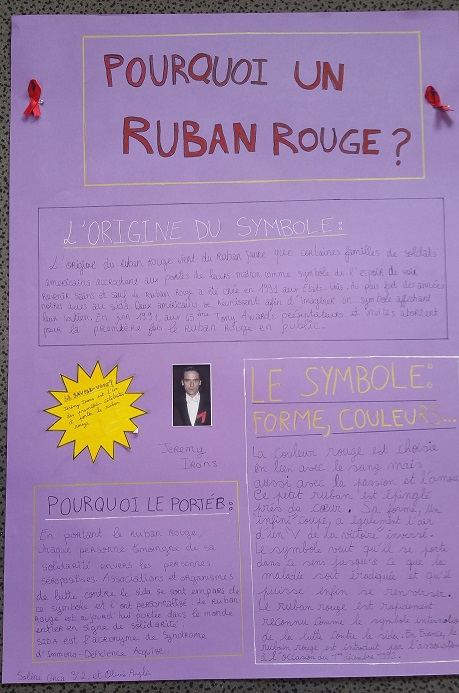 POURQUOI UN
RUBAN ROUGE ?
L'ORIGINE DU SYMBOLE :
L'origine du ruban rouge vient du ruban jaune que certaines familles de soldats
américains accrochent aux portes de leurs maison comme symbole de l'espoir de voir
revenir sains et sauf. Le ruban rouge a été créé en 1991 aux Etats-Unis. Au plus fort des années
noires du sida. Deux américains se réunissent afin d'imaginer un symbole affichant
leur soutien. En juin 1991, aux Tony Awards présentateurs et invités arborent
pour la première fois le ruban rouge en public.
LE SAVIEZ-VOUS ?
Jeremy Irons est l'un
des premières célébrités
à porter le ruban
rouge
Jeremy
Irons
LE SYMBOLE :
FORME, COULEURS...
La couleur rouge est choisie
en lien avec le sang mais
aussi avec la passion et l'amour.
Ce petit ruban est épinglé
près du coeur. Sa forme, un
infini coupé, a également l'air
d'un V de la victoire inversé.
Le symbole veut qu'il se porte
dans ce sens jusqu'à ce que la
maladie soit éradiquée et qu'il
puisse enfin se renverser.
Le ruban rouge est rapidement
reconnu comme le symbole
de la lutte contre le sida. En France, le
ruban rouge est introduit par
à l'occasion du 1er décembre
POURQUOI LE PORTER :
En portant le ruban rouge,
chaque personne témoigne de sa
solidarité envers les personnes
séropositives. Associations et organismes
de lutte contre le sida se sont emparés de
ce symbole et l'ont personnalisé. Le ruban
rouge est aujourd'hui porté dans le monde
entier en signe de solidarité.
SIDA est l'acronyme de Syndrome
d'Immuno-Déficience Acquise